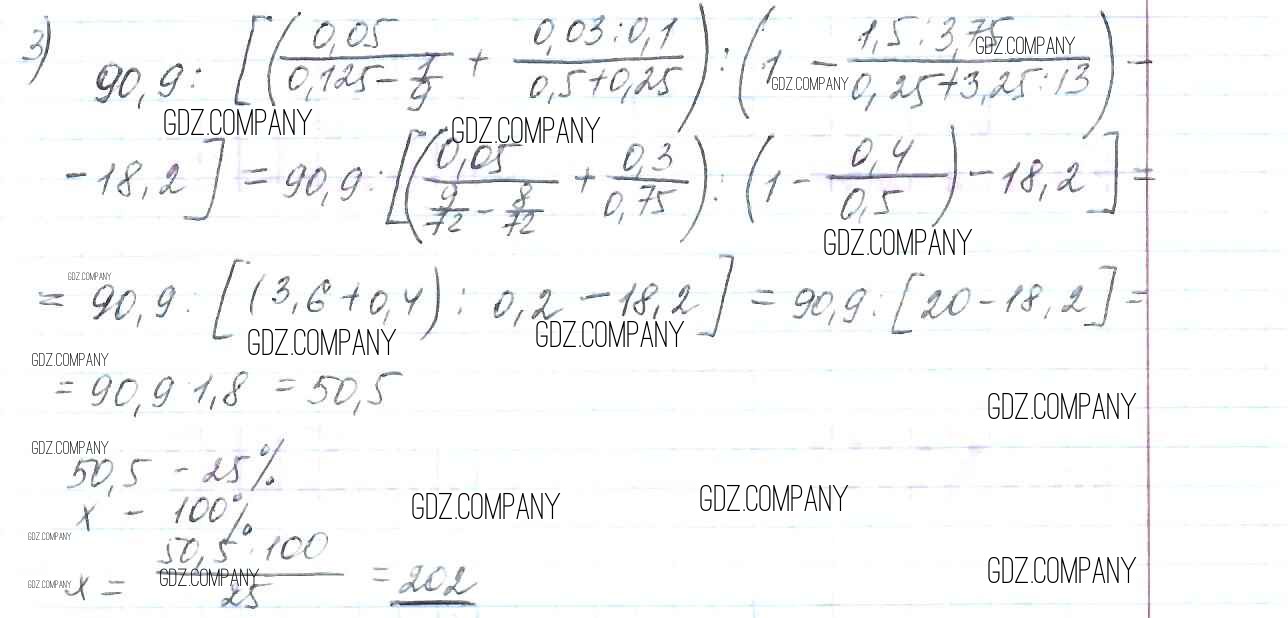 3) 90,9 : [(0,05 / (0,125 - 1/9) + 0,03:0,1 / (0,5+0,25)) : (1 - 1,5:3,75 / (0,25+3,25:13)) -
GDZ.COMPANY
GDZ.COMPANY
GDZ.COMPANY GDZ.COMPANY
- 18,2] = 90,9 : [(0,05 / (9/72 - 8/72) + 0,3/0,75) : (1 - 0,4/0,5) - 18,2] =
GDZ.COMPANY
GDZ.COMPANY
= 90,9 : [(3,6 + 0,4) : 0,2 - 18,2] = 90,9 : [20 - 18,2] =
GDZ.COMPANY GDZ.COMPANY
GDZ.COMPANY
= 90,9 : 1,8 = 50,5
GDZ.COMPANY
GDZ.COMPANY
50,5 - 25%
x - 100%
GDZ.COMPANY GDZ.COMPANY
GDZ.COMPANY
x = 50,5 · 100 / 25 = 202
GDZ.COMPANY GDZ.COMPANY GDZ.COMPANY